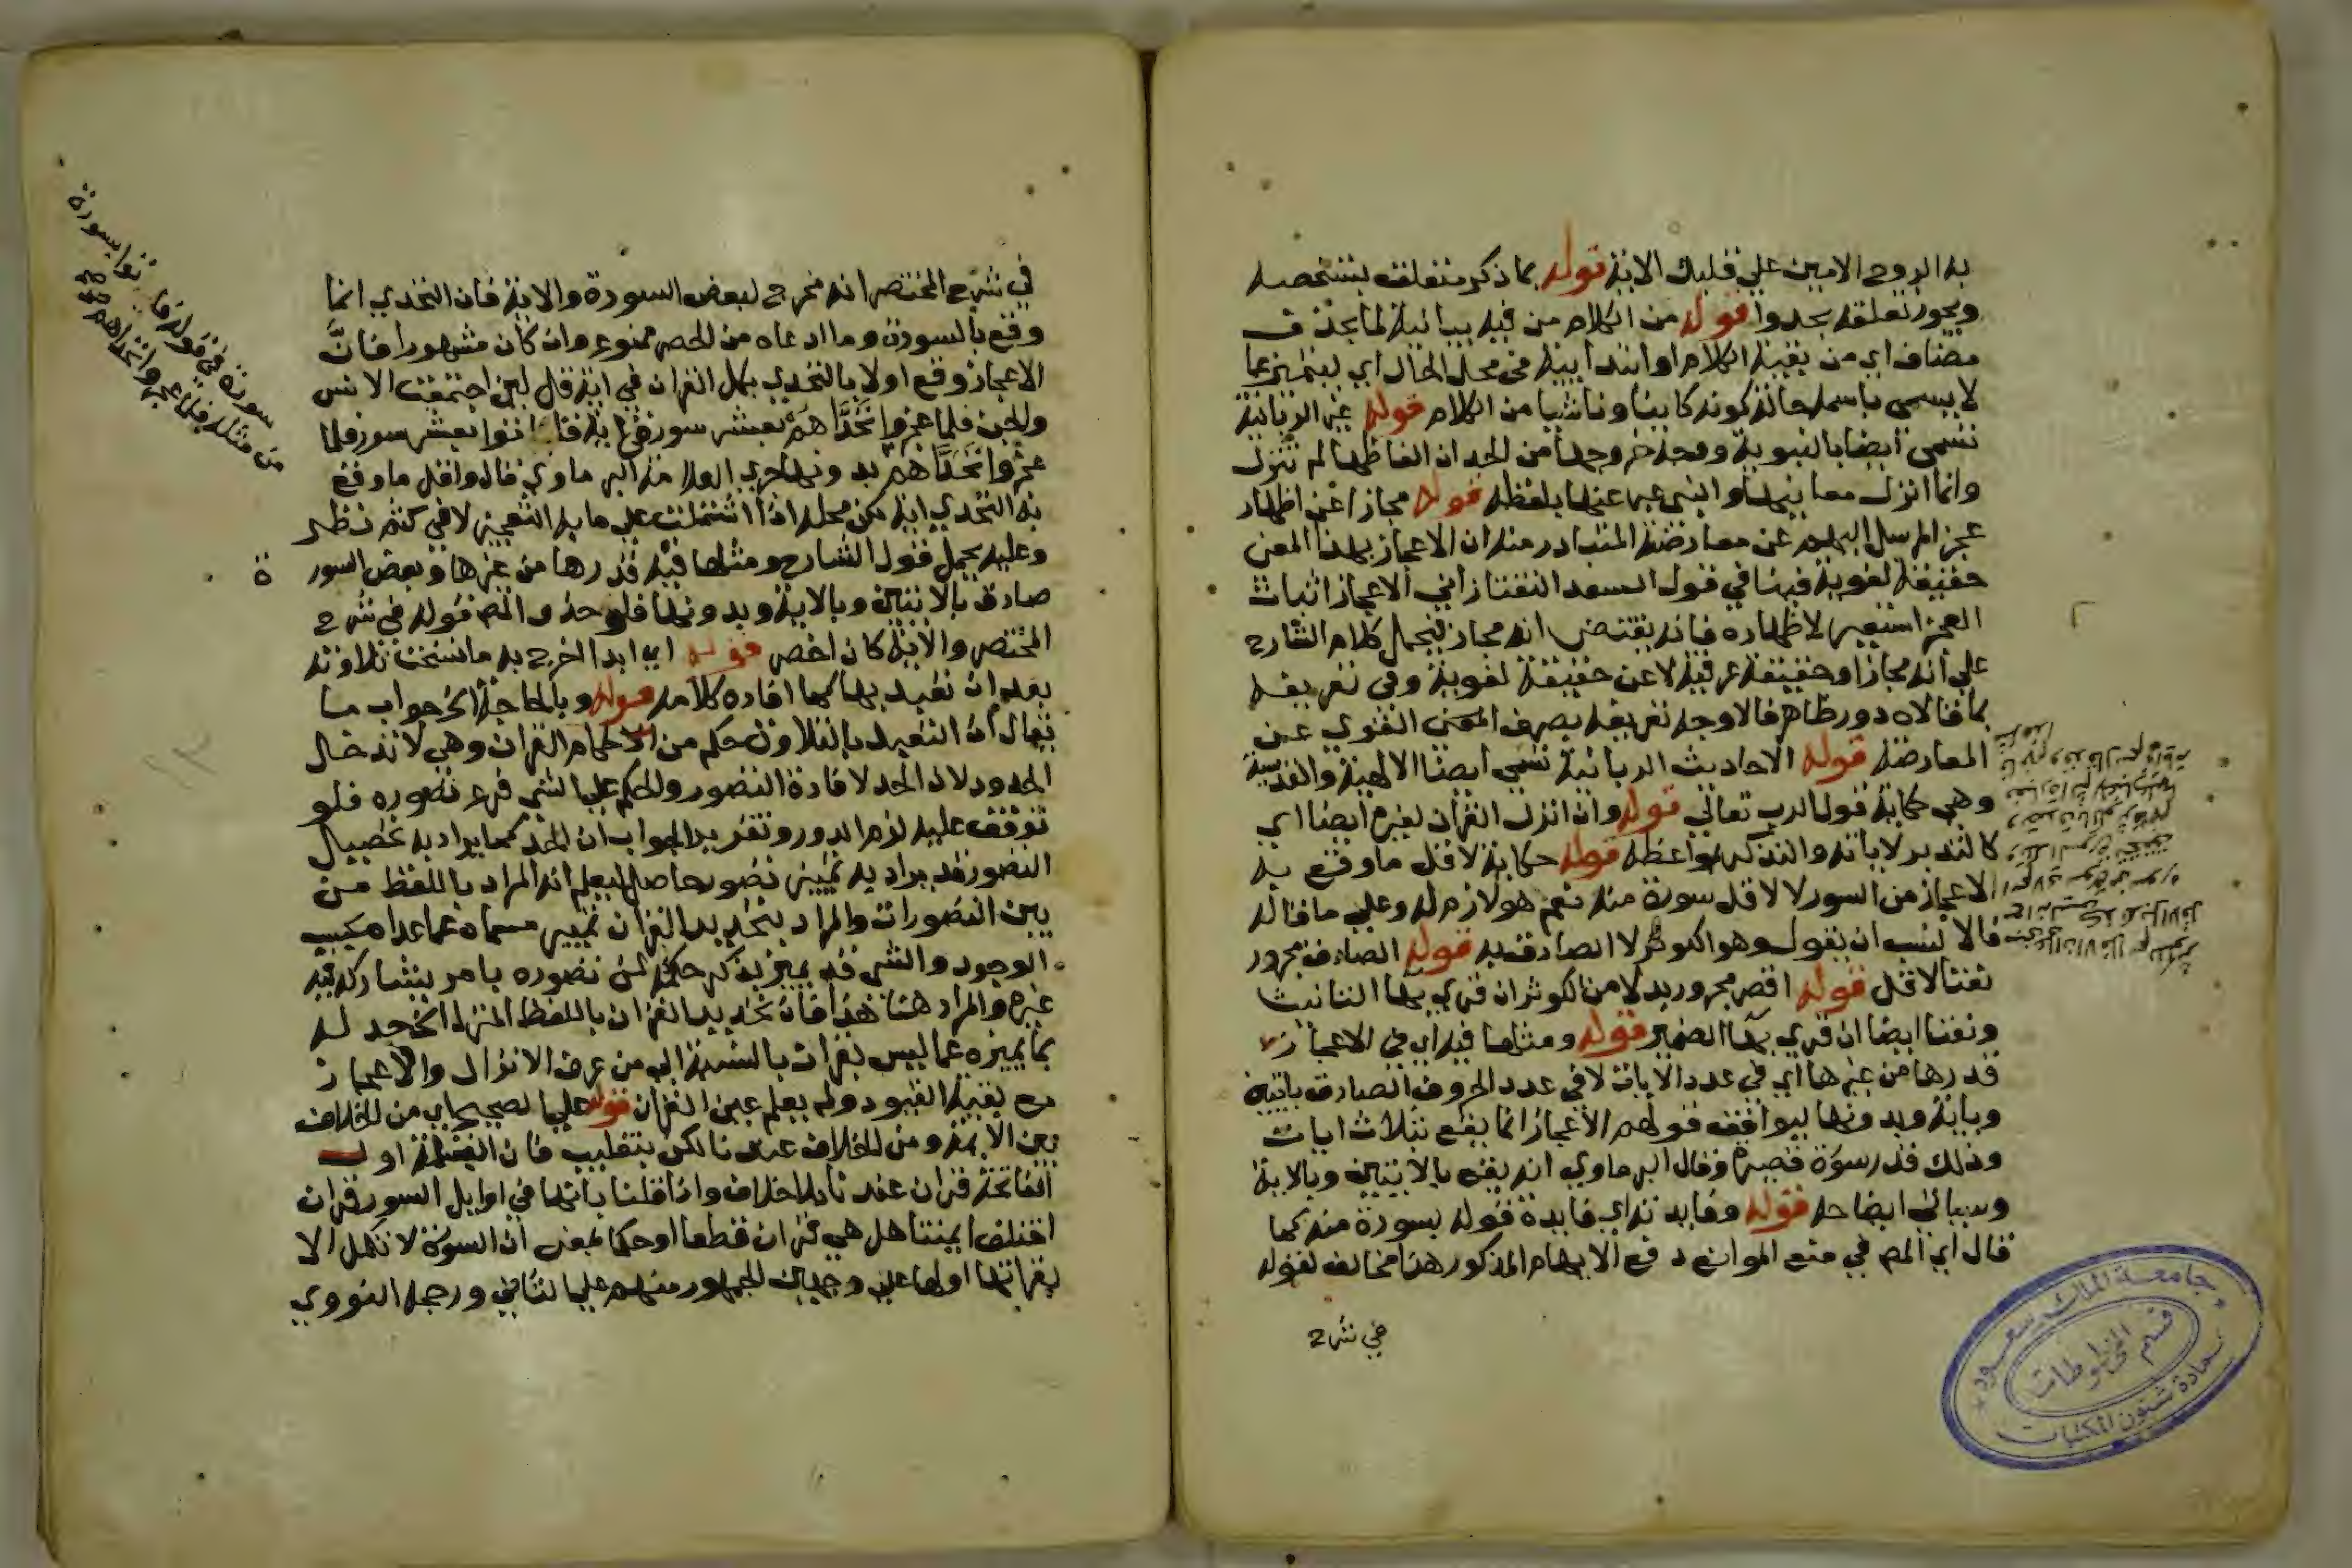 به الروح الامين علي قلبك الاية قوله بما ذكر متعلق بتشخصه
ويجوز تعلقه بحدوا قوله من الكلام من فيه بيانية لما بحذف
مضاف اي من بقية الكلام او ابتدايية في محل الحال اي ليتميز عما
لا يسمى باسمه حالة كونه كاينا وناشيا من الكلام قوله غير الربانية
تسمى ايضا بالنبوية ووجه خروجها من الحد ان الفاظها لم تنزل
وانما انزل معانيها والنبي عبر عنها بلفظه قوله مجازا عن اظهار
عجز المرسل اليهم عن معارضته المتبادر منه ان الاعجاز بهذا المعنى
حقيقة لغوية فينافي قول السعد التفتازاني الاعجاز اثبات
العجز استعير لاظهاره فانه يقتضى انه مجاز فيحمل كلام الشارح
علي انه مجاز او حقيقة عرفية لا عن حقيقة لغوية وفي تعريفه
بما قالاه دور ظاهر فالاوجه تعريفه بصرف المعنى اللغوي عن
المعارضة قوله الاحاديث الربانية تسمي ايضا الالهية والقدسية
وهي حكاية قول الرب تعالي قوله وان انزل القران لغيره ايضا اي
كالتدبر لاياته والتذكر بمواعظه قوله حكاية لاقل ما وقع به
الاعجاز من السور لا لاقل سورة منه نعم هو لازم له وعلي ما قاله
فالانسب ان يقول وهو الكوثر لا الصادق به قوله الصادق مجرور
نعتا لاقل قوله اقصر مجرور بدلا من الكوثر ان قري بها التانيث
ونعتا ايضا ان قري بها الضمير قوله ومثلها فيه اي في الاعجاز
قدرها من غيرها اي في عدد الايات لا في عدد الحروف الصادق باية
وباية وبدونها ليوافق قولهم الاعجاز انما يقع بثلاث ايات
وذلك قدر سورة قصيرة وقال البرماوي انه يقع بالايتين وبالاية
وسياتي ايضاحه قوله وفايدته اي فايدة قوله بسورة منه كما
قال اي المص في منع الموانع دفع الايهام المذكور هذا مخالف لقوله
في شرح
في شرح المختصر انه مخرج لبعض السورة والاية فان التحدي انما
وقع بالسورة وما ادعاه من الحصر ممنوع وان كان مشهورا فانَّ
الاعجاز وقع اولا بالتحدي بكل القران في اية قل لين اجتمعت الانس
والجن فلما عجزوا تحدَّاهم بعشر سور في اية فاتوا بعشر سور فلما
عجزوا تحدَّاهم بدونها
به التحدي اية لكن محله اذا اشتملت علي ما به التعجيز لا في كثم نظر
وعليه يحمل قول الشارح ومثلها فيه قدرها من غيرها وبعض السورة
صادق بالايتين وبالاية وبدونها فلو حذف المص قوله في شرح
المختصر والاية كان اخصر قوله اي ابدا الخرج به ما نسخت تلاوته
بعد ان تعبد بها كما افاده كلامه قوله وبالحاجة الخ جواب ما
يقال ان التعبد بالتلاوة حكم من الاحكام القران وهي لا تدخل
الحدود لان الحد لافادة التصور والحكم علي الشي فرع تصوره فلو
توقف عليه لزم الدور وتقرير الجواب ان الحد كما يراد به تحصيل
التصور قد يراد به تمييز تصور حاصل ليعلم انه المراد باللفظ من
بين التصورات والمراد بتحديد القران تمييز مسماه عما عداه بحسب
الوجود والشي قد يميز بذكر حكمه لمن تصوره بامر يشاركه فيه
غيره والمراد هنا هذا فان تحديد القران باللفظ المنزل الخ حد له
بما يميزه عما ليس بقران بالنسبة الي من عرف الانزال والاعجاز
مع بقية القيود ولم يعلم عين القران قوله علي الصحيح اي من الخلاف
بين الايمة ومن الخلاف عندنا لكن بتغليب فان البسملة اول
الفاتحة قران عندنا بلا خلاف واذا قلنا بانها في اوايل السور قران
اختلف ايمتنا هل هي قران قطعا او حكما بمعنى ان السورة لا تكمل الا
بقراتها اولها علي وجهين الجمهور منهم علي الثاني ورجحه النووي
سورة في قوله فاتوا بسورة
من مثله فلما عجزوا تحداهم
جامعة الملك سعود
قسم المخطوطات
عمادة شئون المكتبات